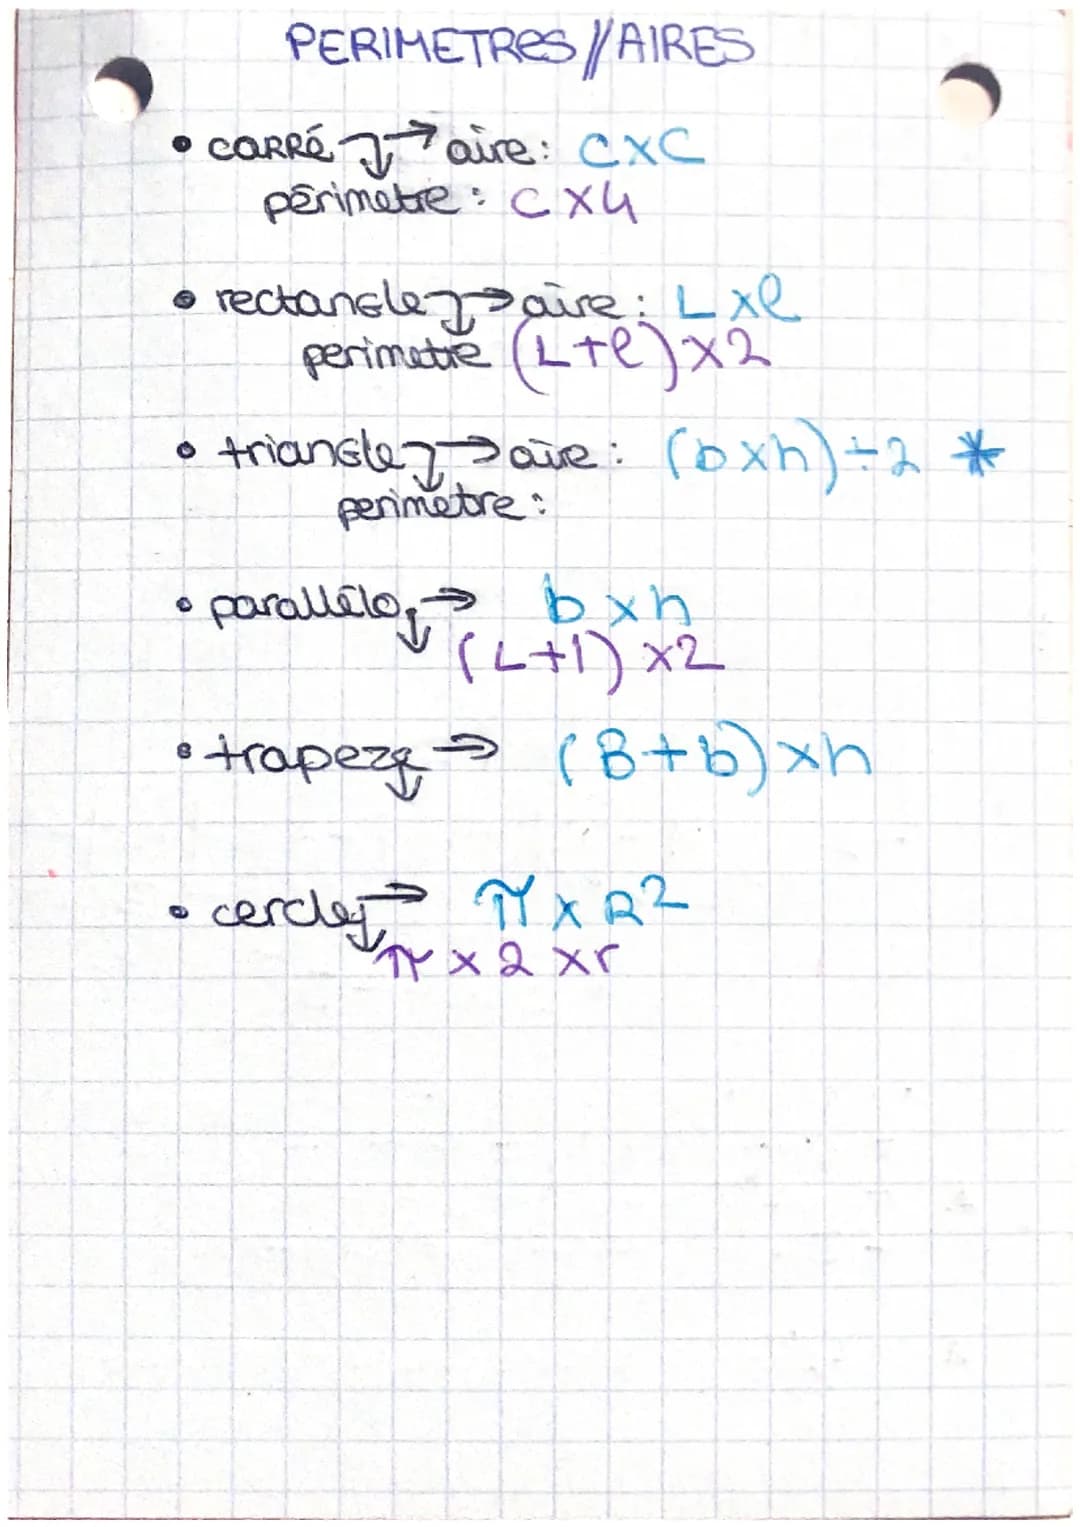 PERIMETRES // AIRES
• CARRÉ → aire : C×C
périmetre : C×4
• rectangle → aire : L×l
perimetre (L+l)×2
• triangle → aire : (b×h)÷2 *
perimetre :
• parallélo → b×h
(L+l)×2
• trapeze → (B+b)×h
• cercle → π×R²
π×2×r